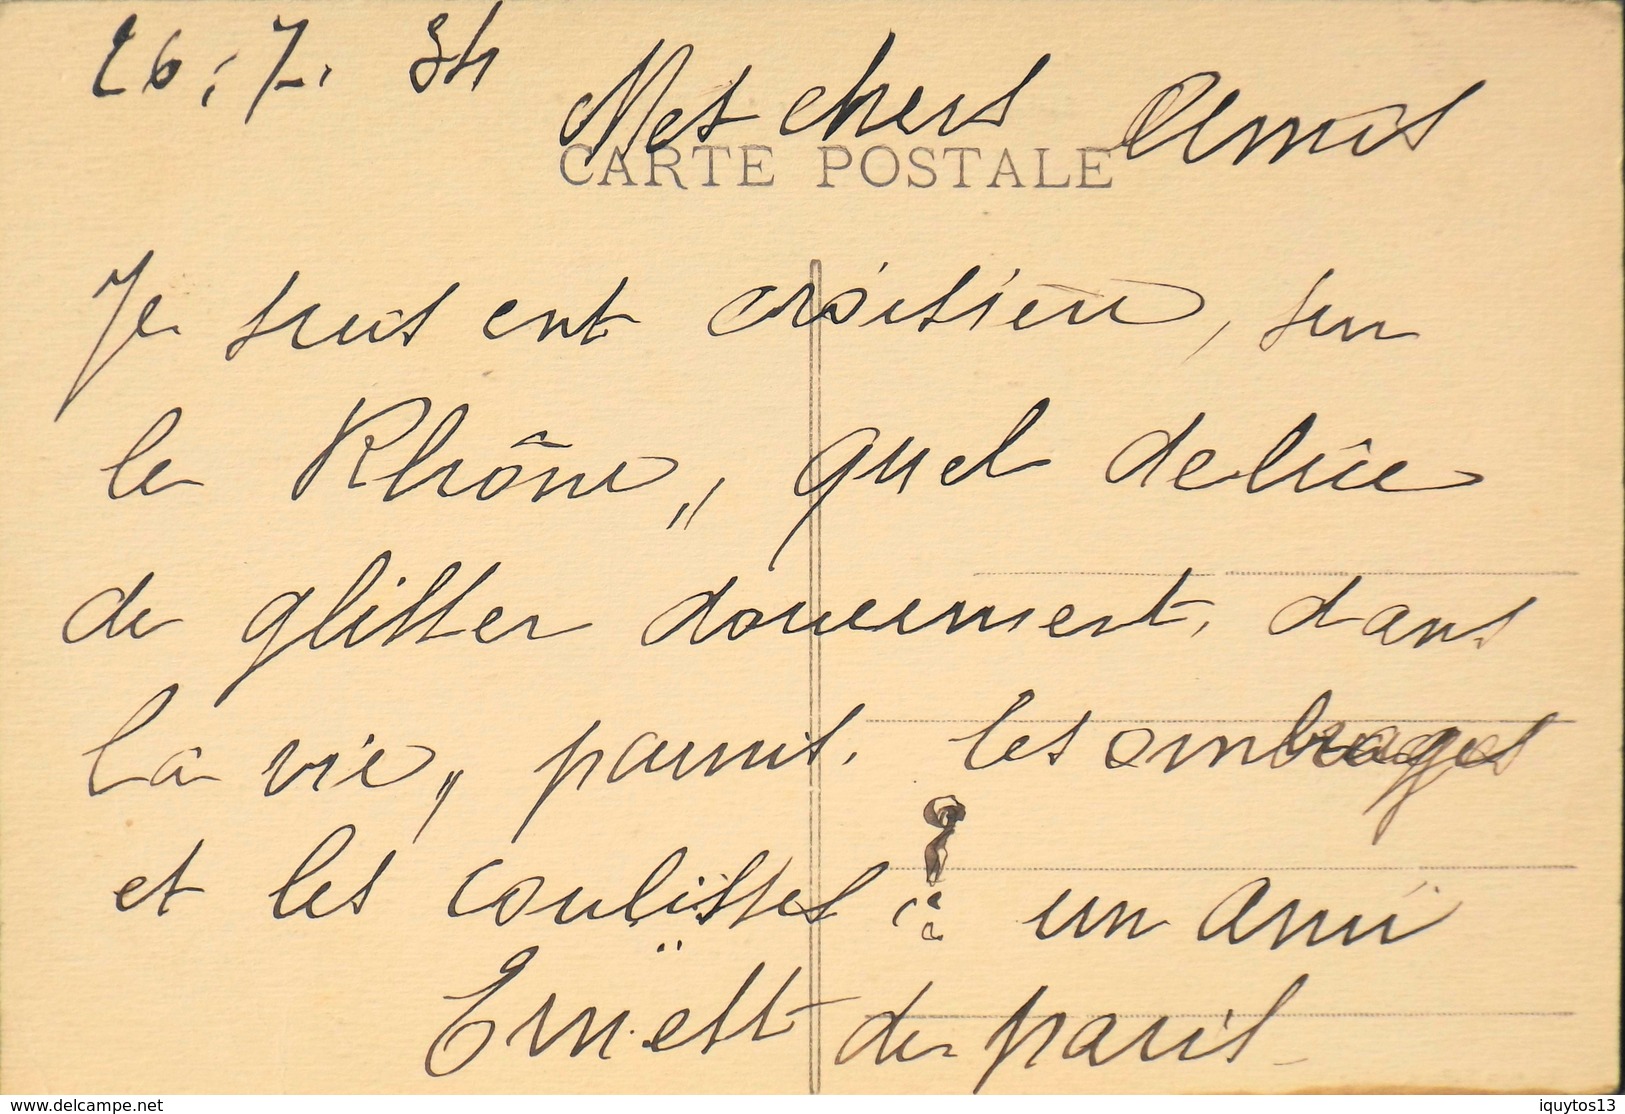 26.7.34
Mes chers Amis
CARTE POSTALE
Je suis ent croisieu, sur
le Rhône,, quel delice
de glisser doucement, dans
la vie,, parmis. les ombrages
et les coulisses ? un ami
Ernëst de paris
www.delcampe.net
iquytos13